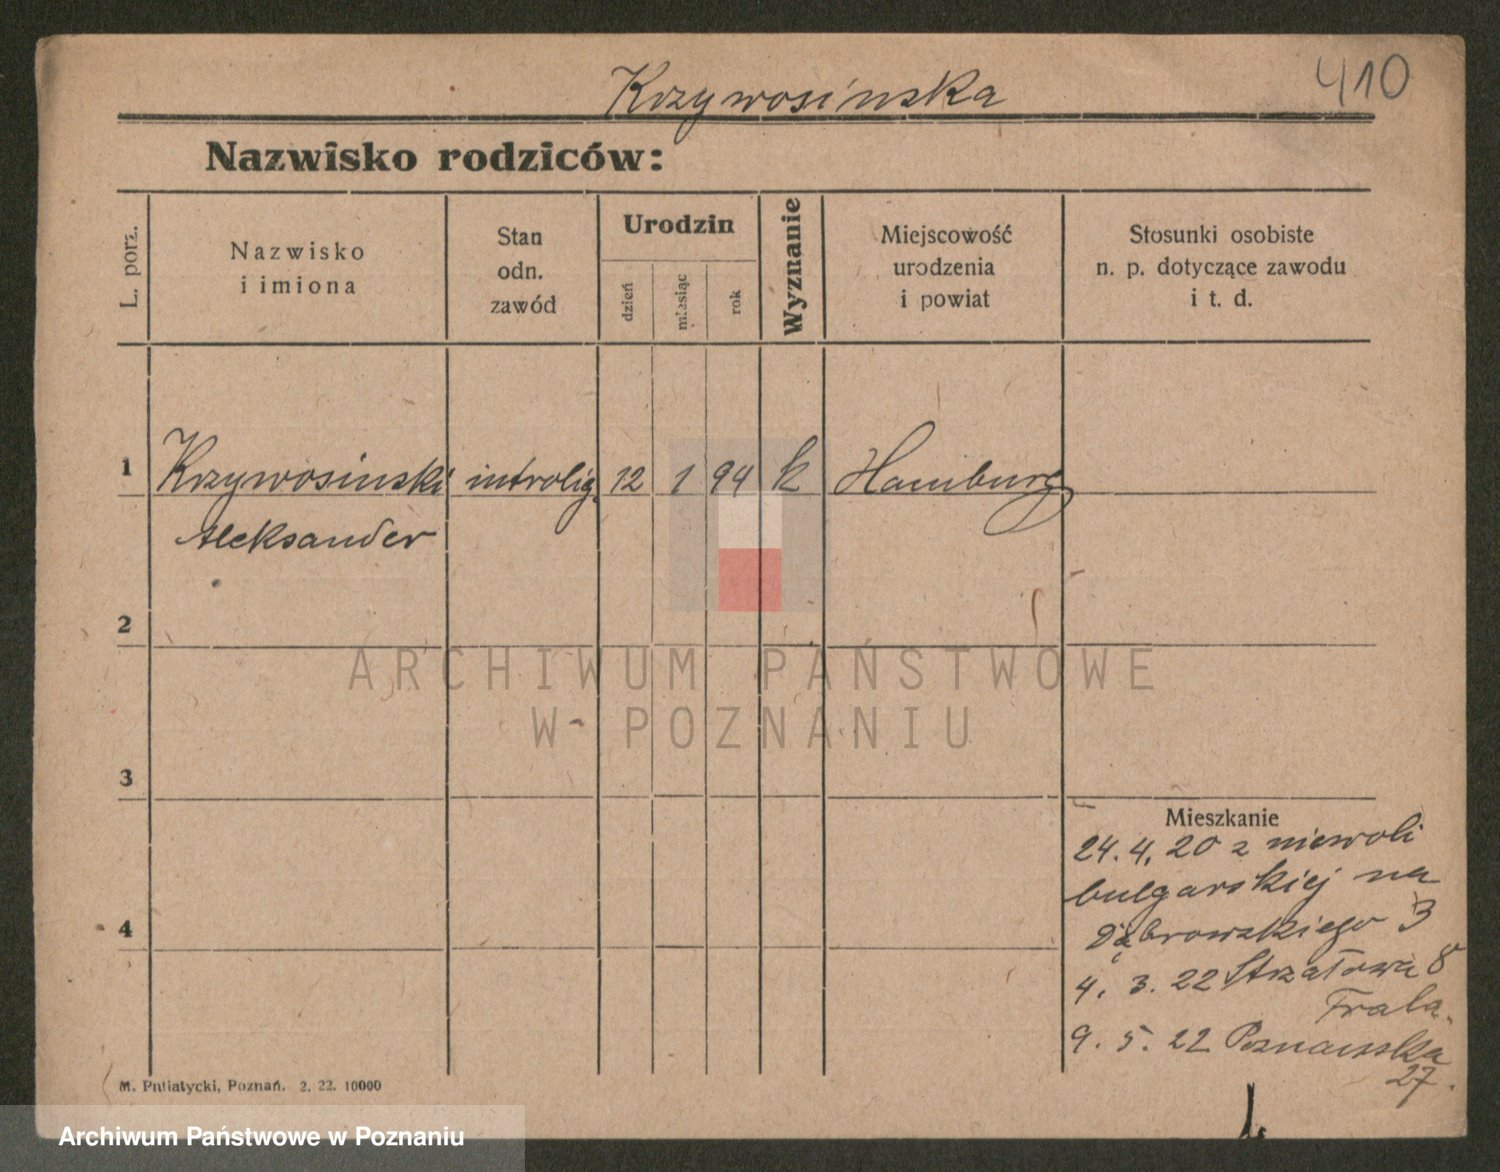 410
Krzywosinska
Nazwisko rodziców:
L. porz.
Nazwisko
i imiona
Stan
odn.
zawód
Urodzin
dzień
miesiąc
rok
Wyznanie
Miejscowość
urodzenia
i powiat
Stosunki osobiste
n. p. dotyczące zawodu
i t. d.
1 Krzywosinski introlig. 12 1 94 k Hamburg
Aleksander
2
3
4
Mieszkanie
24. 4. 20 z niewoli
bulgarskiej na
Dąbrowskiego 3
4. 3. 22 Strzałowa 8
Frala.
9. 5. 22 Poznanska
27.
M. Putiatycki, Poznań. 2. 22. 10000
ARCHIWUM PAŃSTWOWE
W POZNANIU
Archiwum Państwowe w Poznaniu